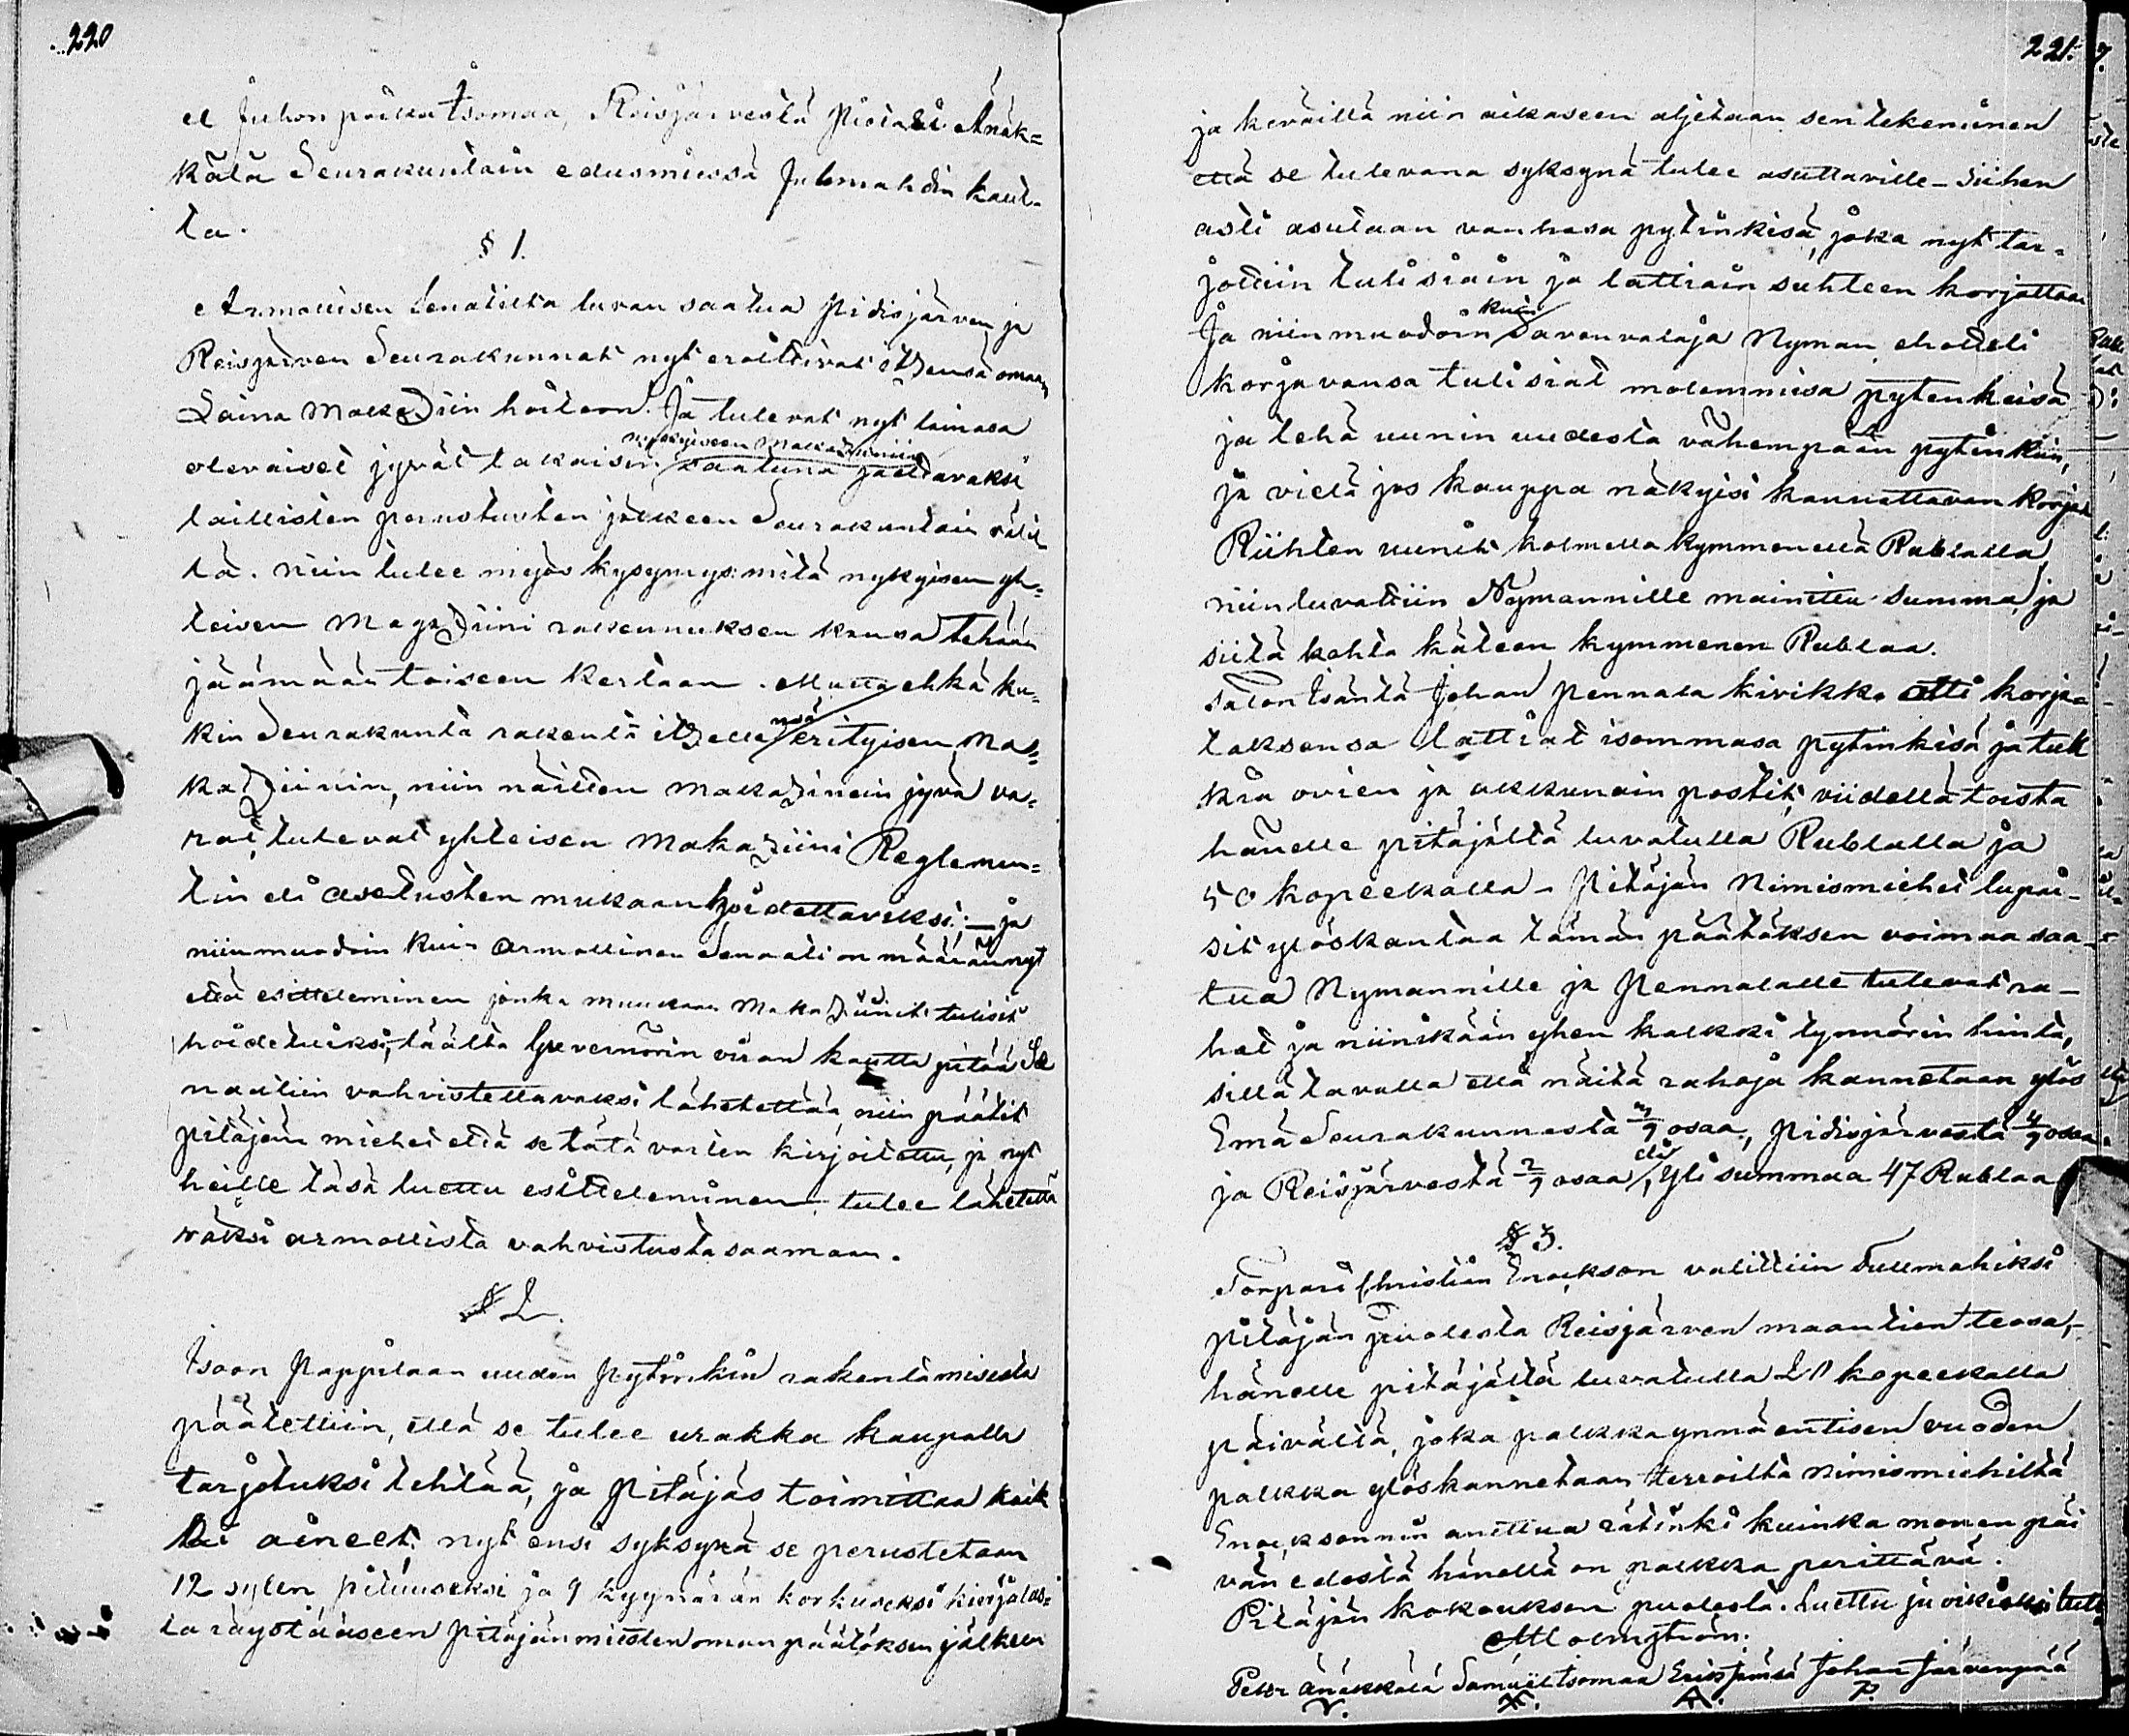 220
el Juhonpoika Isomaa, Reisjärvestä Pietari Änäk=
kälä Seurakuntain edusmiessä Julmahdin kaut-
ta.
§ 1.
Armollisen Senatilta luvan saatua Pidisjärven ja
Reisjärven Seurakunnat nyt eroittivat itzensä omaan
Laina Makadziin hoitoon. Ja tulevat nyt lainasa
olevaiset jyvät takaisin nykyiseen Makadziiniin saatuna jaettavaksi
laillisten perustusten jälkeen Seurakuntain välil
tä. niin tulee myös kysymys: mitä nykyisen yh=
teisen Magadziini rakennuksen kansa tehään
jäämään toiseen kertaan. Mutta ehkä ku=
kin Seurakunta rakentä itzellensä erityisen Ma=
kadziinin, niin näitten makadzinein jyvä va=
rat, tulevat yhteisen Makadziini Reglemen=
tin eli asetusten mukaan hoidettaviksi; — ja
niinmuodoin kuin Armollinen Senaati on määrännyt
että esitteleminen jonka muukaan Makadziinit tulisit
hoidetuiksi, täältä Guvernörin viran kautta pitää Se
naatiin vahvistettavaksi lähetettää, niin päätit
pitäjän miehet että se tätä varten kirjoitettu, ja nyt
heille täsä luettu esitteleminen tulee lähetettä
väksi armollista vahvistusta saamaan.
§ 2.
Isoon Pappilaan uuden Pytinkin rakentamisesta
päätettiin, että se tulee urakka kaupalla
tarjotuksi tehtää, ja Pitäjäs toimittaa kaik
ki aineet; nyt ensi syksynä se perustetaan
12 sylen pituuseksi ja 9 kyynärän korkuseksi kivijalas=
ta räystääseen Pitäjänmiesten oman päätöksen jälkeen
221.
ja keväillä niin aikaseen aljetaan sen tekeminen
että se tulevana syksynä tulee asuttaville - siihen
asti asutaan vanhasa pytinkisä, joka nyt tar=
jottiin tulisiain ja lattiain suhteen korjattaa
Ja niinmuodoin kuin Savenvalaja Nyman ehotteli
korjavansa tulisiat molemmissa pytenkeisä
ja tehä uunin uudesta vähempään pytinkiin,
ja vielä jos kauppa näkyisi kannattavan korjat
Riihten uunit kolmella kymmenellä Rublalla,
niin luvattiin Nymannille mainittu summa, ja
siitä kohta käteen kymmenen Rublaa.
Salon Isäntä Johan Pennala kivikko otti korja=
taksensa lattiat isommasa pytinkisä ja tuk
kia ovien ja akkunain postit, viidellä toista
hänelle pitäjältä luvatulla Rublalla ja
50 kopeekalla - Pitäjän Nimismiehet lupai-
sit ylöskantaa tämän päätöksen voimaa saa-
tua Nymannille ja Pennalalle tulevat ra-
hat ja niinikään yhen kalkki tynnörin hinta,
sillä tavalla että näitä rahoja kannetaan ylös
Emä Seurakunnasta 3/9 osaa, Pidisjärvestä 4/9 osaa
ja Reisjärvestä 2/9 osaa eli, Yli summaa 47 Rublaa
§ 3.
Torpari Christian Enockson valittiin Fullmahiksi
pitäjän puolesta Reisjärven maantien teosa,-
hänelle pitäjältä luvatulla 20 kopeekalla
päivältä, joka palkka ynnä entisen vuoden
palkka ylöskannetaan terroilta nimismiehiltä
Enocksonnin anittua rätinki kuinka monen päi
vän edestä hänellä on palkka perittävä.
Pitäjän kokouksen puolesta. Luettu ja oikiaksi tuttu
Malmström.
Petter Änäkkälä Samuel Isomaa Eric Jämsä Johan Järvenpää